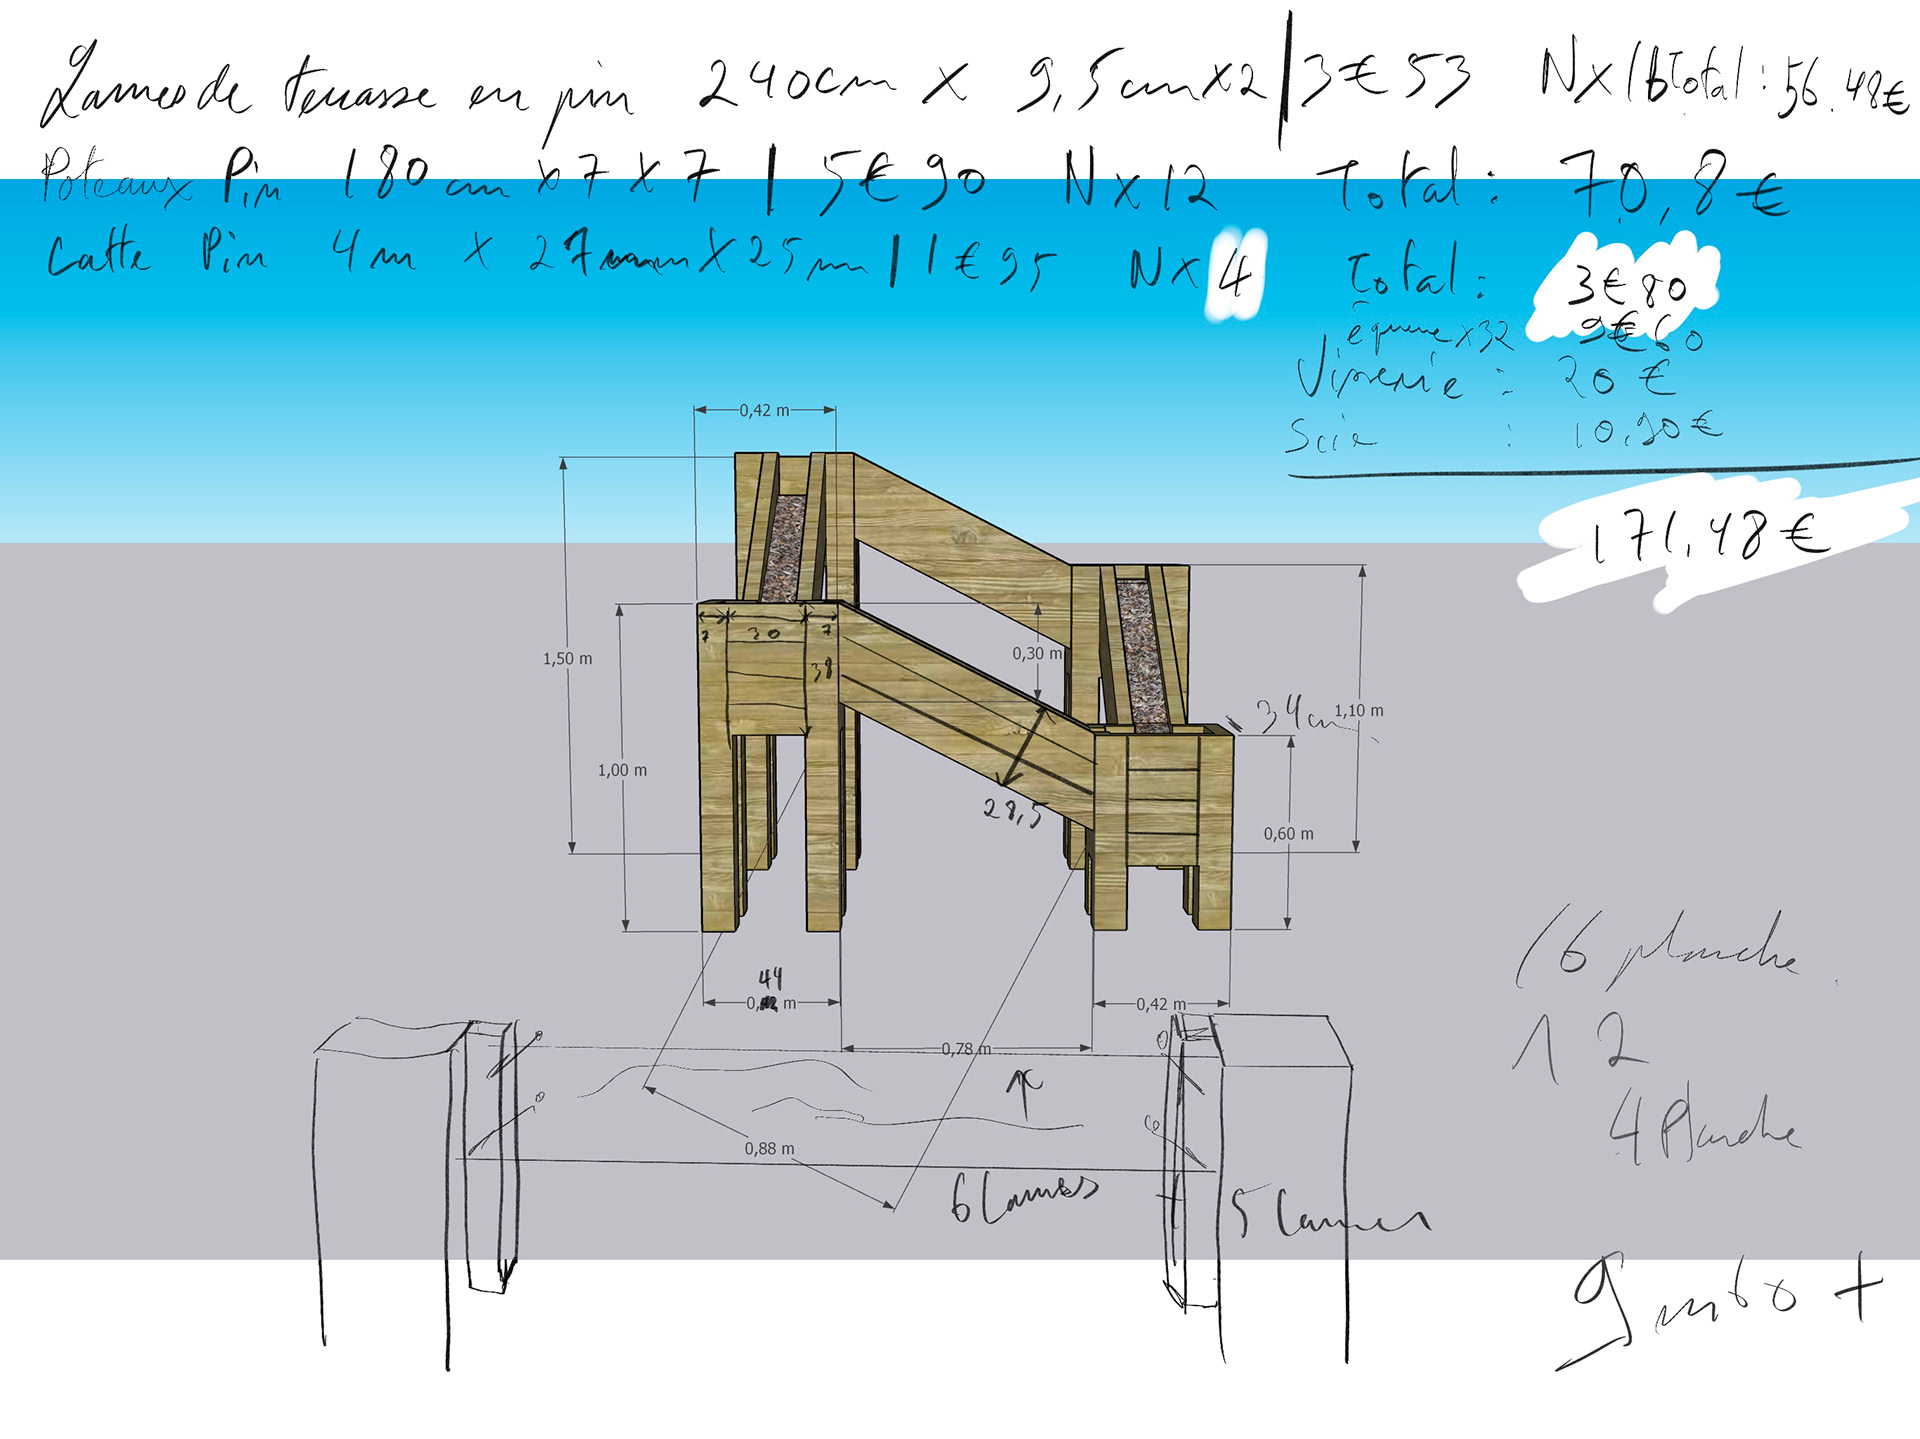 Lames de terrasse en pin 240cm x 9,5cm x2 | 3€53 Nx16 total : 56.48€
Poteaux Pin 180 cm x 7 x 7 | 5€90 Nx12 Total : 70,8€
Latte Pin 4m x 27mm x 25mm | 1€95 Nx4 Total : 3€80
équerre x32 9€60
Visserie : 20€
Scie : 10,90€
171,48€
0,42 m
1,50 m
7 30 7
0,30 m
38
34cm
1,10 m
1,00 m
28,5
0,60 m
16 planche
44
0, m
0,42 m
0,78 m
12
4 Planche
0,88 m
6 Lames
5 Lames
9m60 +